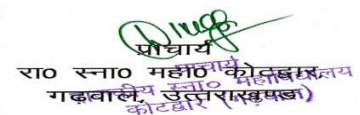 प्राचार्य
रा० स्ना० महा० कोटद्वार,
गढ़वाल, उत्तराखण्ड।
प्राचार्य
स्ना० महाविद्यालय
कोटद्वार (गढ़वाल)